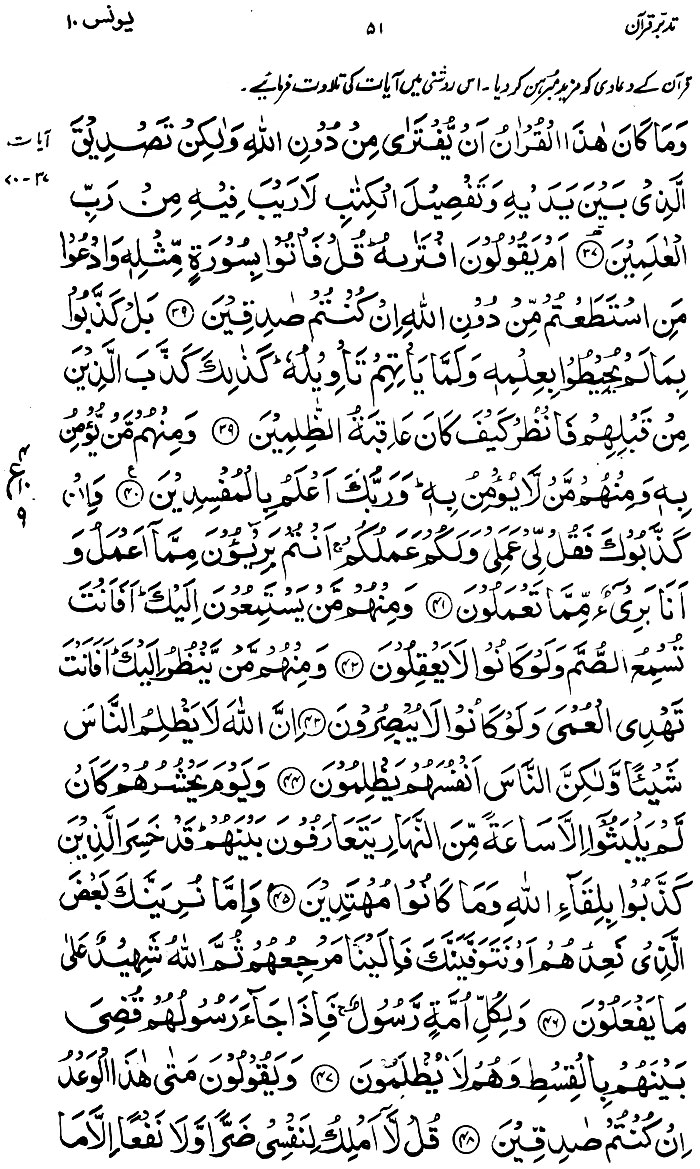 تدبّر قرآن ۵۱ یونس ۱۰
قرآن کے دعاوی کو مزید مبرہن کر دیا۔ اس روشنی میں آیات کی تلاوت فرمائیے۔
وَمَا كَانَ هٰذَا الْقُرْاٰنُ اَنْ يُّفْتَرٰى مِنْ دُوْنِ اللّٰهِ وَلٰكِنْ تَصْدِيْقَ آیات
الَّذِىْ بَيْنَ يَدَيْهِ وَتَفْصِيْلَ الْكِتٰبِ لَا رَيْبَ فِيْهِ مِنْ رَّبِّ ۳۷-۷۰
الْعٰلَمِيْنَ ﴿۳۷﴾ اَمْ يَقُوْلُوْنَ افْتَرٰىهُ ؕ قُلْ فَاْتُوْا بِسُوْرَةٍ مِّثْلِهٖ وَادْعُوْا
مَنِ اسْتَطَعْتُمْ مِّنْ دُوْنِ اللّٰهِ اِنْ كُنْتُمْ صٰدِقِيْنَ ﴿۳۹﴾ بَلْ كَذَّبُوْا
بِمَا لَمْ يُحِيْطُوْا بِعِلْمِهٖ وَلَمَّا يَاْتِهِمْ تَاْوِيْلُهٗ ؕ كَذٰلِكَ كَذَّبَ الَّذِيْنَ
مِنْ قَبْلِهِمْ فَانْظُرْ كَيْفَ كَانَ عَاقِبَةُ الظّٰلِمِيْنَ ﴿۳۹﴾ وَمِنْهُمْ مَّنْ يُّؤْمِنُ
بِهٖ وَمِنْهُمْ مَّنْ لَّا يُؤْمِنُ بِهٖ ؕ وَرَبُّكَ اَعْلَمُ بِالْمُفْسِدِيْنَ ﴿۴۰﴾ وَاِنْ ۴ ع ۱۰ ۹
كَذَّبُوْكَ فَقُلْ لِّىْ عَمَلِىْ وَلَكُمْ عَمَلُكُمْ ۚ اَنْتُمْ بَرِيْٓـُٔوْنَ مِمَّاۤ اَعْمَلُ وَ
اَنَا بَرِىْٓءٌ مِّمَّا تَعْمَلُوْنَ ﴿۴۱﴾ وَمِنْهُمْ مَّنْ يَّسْتَمِعُوْنَ اِلَيْكَ ؕ اَفَاَنْتَ
تُسْمِعُ الصُّمَّ وَلَوْ كَانُوْا لَا يَعْقِلُوْنَ ﴿۴۲﴾ وَمِنْهُمْ مَّنْ يَّنْظُرُ اِلَيْكَ ؕ اَفَاَنْتَ
تَهْدِى الْعُمْىَ وَلَوْ كَانُوْا لَا يُبْصِرُوْنَ ﴿۴۳﴾ اِنَّ اللّٰهَ لَا يَظْلِمُ النَّاسَ
شَيْـًٔا وَّلٰكِنَّ النَّاسَ اَنْفُسَهُمْ يَظْلِمُوْنَ ﴿۴۴﴾ وَيَوْمَ يَحْشُرُهُمْ كَاَنْ
لَّمْ يَلْبَثُوْۤا اِلَّا سَاعَةً مِّنَ النَّهَارِ يَتَعَارَفُوْنَ بَيْنَهُمْ ؕ قَدْ خَسِرَ الَّذِيْنَ
كَذَّبُوْا بِلِقَآءِ اللّٰهِ وَمَا كَانُوْا مُهْتَدِيْنَ ﴿۴۵﴾ وَاِمَّا نُرِيَنَّكَ بَعْضَ
الَّذِىْ نَعِدُهُمْ اَوْ نَتَوَفَّيَنَّكَ فَاِلَيْنَا مَرْجِعُهُمْ ثُمَّ اللّٰهُ شَهِيْدٌ عَلٰى
مَا يَفْعَلُوْنَ ﴿۴۶﴾ وَلِكُلِّ اُمَّةٍ رَّسُوْلٌ ۚ فَاِذَا جَآءَ رَسُوْلُهُمْ قُضِىَ
بَيْنَهُمْ بِالْقِسْطِ وَهُمْ لَا يُظْلَمُوْنَ ﴿۴۷﴾ وَيَقُوْلُوْنَ مَتٰى هٰذَا الْوَعْدُ
اِنْ كُنْتُمْ صٰدِقِيْنَ ﴿۴۸﴾ قُلْ لَّاۤ اَمْلِكُ لِنَفْسِىْ ضَرًّا وَّلَا نَفْعًا اِلَّا مَا